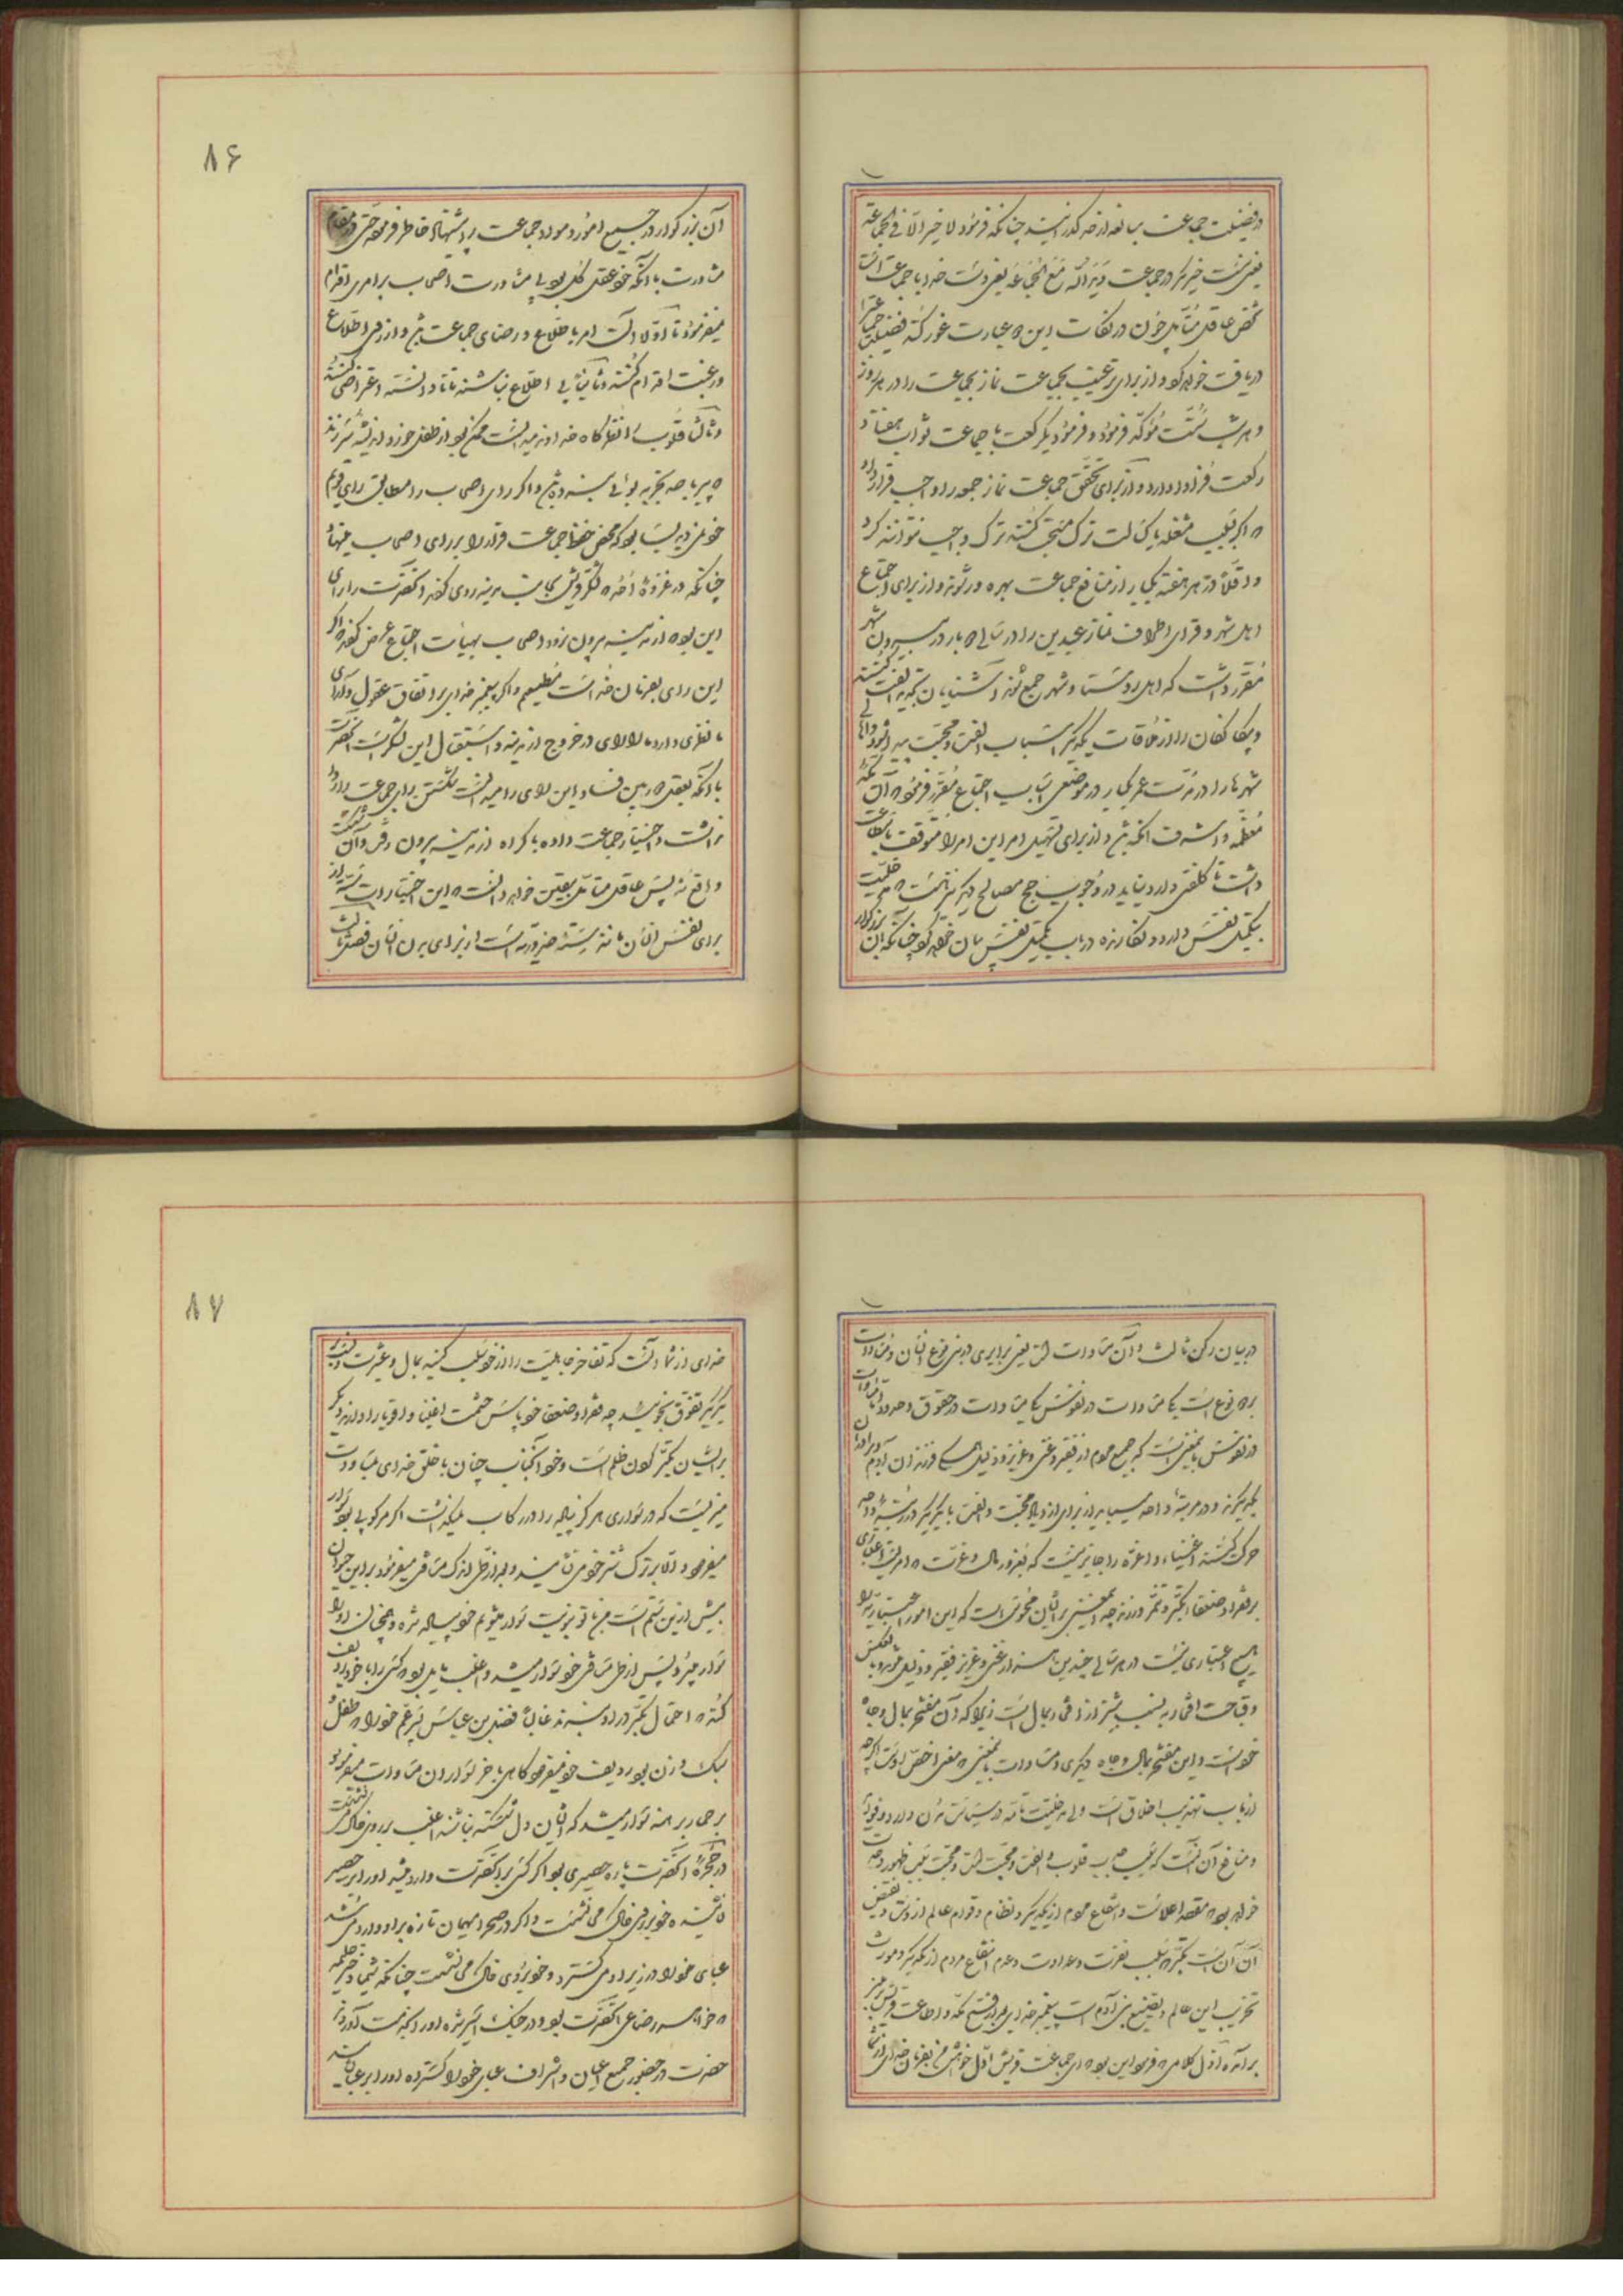 در فضیلت جماعت مبالغه از حد گذرانید چنانکه فرمود لا خیر الّا فی الجماعة
یعنی نیست خیر مگر در جماعت و ید الله مع الجماعة یعنی دست خدا با جماعت است
شخص عاقل متأمل چون در نکات این دو عبارت غور کند فضیلت جماعت را
دریافت خواهد کرد و از برای ترغیب بجماعت نماز بجماعت را در هر روز
و هر شب سنّت مؤکّد فرمود و فرمود یکرکعت با جماعت ثواب هفتاد
رکعت فرادا دارد و از برای تحقّق جماعت نماز جمعه را واجب قرار داد
که اگر بسبب مشغله یا کسالت ترک مستحب کنند ترک واجب نتوانند کرد
و اقلّاً در هر هفته یکبار از منافع جماعت بهره ور شوند و از برای اجتماع
اهل شهر و قرای اطراف نماز عیدین را در سالی دو بار در بیرون شهر
مقرر داشت که اهل روستا و شهر جمع شوند و آشنایان تجدید الفت کنند
و بیگانگان را از ملاقات یکدیگر اسباب الفت و محبت پیدا شود و اهالی
شهرها را در مدت عمر یکبار در موضعی اسباب اجتماع مقرر فرمود که آن مکه
معظمه و اشرف امکنه باشد و از برای تسهیل امر این امر را موقوف باستطاعت
داشت تا کلفتی وارد نیاید در وجوب حج مصالح دیگر نیز هست که مدخلیت
بتکمیل نفس دارد و انکارنده در باب تکمیل نفس بیان خواهد کرد چنانکه آن بزرگوار
۸۶
آن بزرگوار در جمیع امور و موارد جماعت را پیشنهاد خاطر فرموده حتی در مقام
مشاورت با آنکه خود عقل کل بود بی مشاورت اصحاب بر امری اقدام
نمیفرمود تا اولا آن امر با طلاع و رضای جماعت باشد و از روی اطلاع
و رغبت اقدام کنند و ثانیاً بی اطلاع نباشند تا نادانسته اعتراضی کنند
و ثالثاً قلوب را نظرگاه خداوند میدانست ممکن بود از طفلی خورد اندیشه سر زند
که پیر با صد تجربه بوی نرسیده باشد و اگر رای اصحاب را مطابق رای قویم
خود نمیدید بسیار بود که محض حفظ جماعت قرار را بر رای اصحاب مینهاد
چنانکه در غزوه احد که لشکر قریش بجانب مدینه روی کردند آنحضرت را رای
این بود که از مدینه بیرون نرود اصحاب بهیأت اجتماع عرض کردند که اگر
این رای بفرمان خداست مطیعیم و اگر پیغمبر خدای بر اتفاق عقول و آرای
ما نظری دارد ما را رای در خروج از مدینه و استقبال این لشکر است آنحضرت
با آنکه بعقل دوربین فساد این رای را میدانست شکستن رای جماعت را روا
نداشت و اختیار جماعت داده با کراه از مدینه بیرون رفت و آن شکست
واقع شد پس عاقل متأمل بیقین خواهد دانست که این اختیارات ستّه از
برای نفس انسان مانند ستّه ضروریه است از برای بدن انسان فصل ثالث
در بیان رکن ثالث و آن مساوات است یعنی برابری در بنی نوع انسان و مساوات
بر دو نوع است یکی مساوات در نفوس یکی مساوات در حقوق و حدود و مساوات
در نفوس باینمعنی است که جمیع مردم از فقیر و غنی و عزیز و ذلیل همه فرزندان آدم و برادران
یکدیگرند و در مرتبه واحد میباید از برای ازدیاد محبت و الفت با یکدیگر در رشته واحد
حرکت کنند اغنیاء و اعزه را جایز نیست که بغرور مال و عزت که امریست اعتباری
بر فقرا و ضعفا تکبّر و تنمر ورزند چه همچنین بر ایشان مخفی است که این امور اعتباریه را
هیچ اعتباری نیست در هر سالی چندین هزار غنی و عزیز فقیر و ذلیل شود و بالعکس
و قباحت افتخار به نسب بیشتر از افتخار بمال است زیرا که آن مفتخر بمال و جاه
خود است و این مفتخر بمال و جاه دیگری و مساوات باینمعنی که معنی اخص اوست اگرچه
از باب تهذیب اخلاق است ولی مدخلیت تامه در سیاست مدن دارد و فواید
و منافع آن آنست که سبب جذب قلوب و الفت و محبت است و محبت سبب ظهور وحدت
خواهد بود که مقصد اعلاست و انتفاع مردم از یکدیگر و نظام و قوام عالم از اوست و نقیض
آن آن است تکبر که سبب نفرت و عداوت و عدم انتفاع مردم از یکدیگر و مورث
تخریب این عالم و تضییع بنی آدم است پیغمبر خدای بعد از فتح مکه و اطاعت قریش بر منبر
بر آمده اول کلامی که فرمود این بود که ای جماعت قریش اول خواهش من بفرمان خدای از شما
۸۷
خدای از شما آنست که تفاخر جاهلیت را از خود سلب کنید بمال و عشرت و نسب
بر یکدیگر تفوق نجویید چه فقرا و ضعفا خود پاس حشمت اغنیا و اقویا را دارند دیگر
بر ایشان تکبر کردن ظلم است و خود آنجناب چنان با خلق خدای بمساوات
میزیست که در سواری هرگز پیاده را در رکاب نمیگذاشت اگر مرکوبی بود سوار
میفرمود و الا بر ترک شتر خود مینشانید و بعد از طی اندک مسافتی میفرمود بر این حیوان
بیش ازین ستم است من با تو بنوبت سوار میشویم خود پیاده شده و همچنان او را
سوار میبرد و پس از طی مسافتی خود سوار میشد و اغلب مایل بود که کسی را با خود ردیف
کند که احتمال تکبر در او نرود غالباً فضل بن عباس پسر عم خود را که طفل
سبک وزن بود ردیف خود میفرمود گاهی با خر سواران مساوات میفرمود
بر حمار برهنه سوار میشد که ایشان دل شکسته نباشند اغلب بر روی خاک می نشست
در حجره آنحضرت پاره حصیری بود اگر کسی بر آنحضرت وارد میشد او را بر حصیر
نشانیده خود بر روی خاک می نشست و اگر در صحرا مهمان تازه بر او وارد می شد
عبای خود را در زیر او می گسترد و خود بر روی خاک می نشست چنانکه شیما دختر حلیمه
که خواهر رضاعی آنحضرت بود و در جنگ اسیر شده او را بخدمت آوردند
حضرت در حضور جمیع اعیان و اشراف عبای خود را گسترده او را بر عبا نشانید